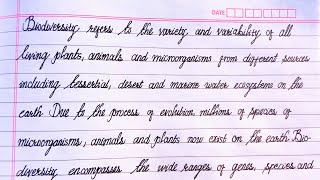 DATE
Biodiversity refers to the variety and variability of all
living plants, animals and microorganisms from different sources
including tessertial, desert and marine water ecosystems on the
earth Due to the process of evolution millions of species of
microorganisms, animals and plants now exist on the earth Bio-
diversity encompasses the wide ranges of genes, species and